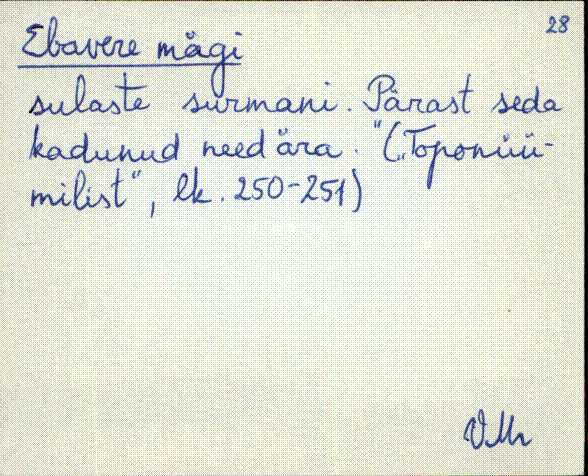 28
Ebavere mägi
sulaste surmani. Pärast seda
kadunud need ära." („Toponüü-
milist", lk. 250-251)
VMr